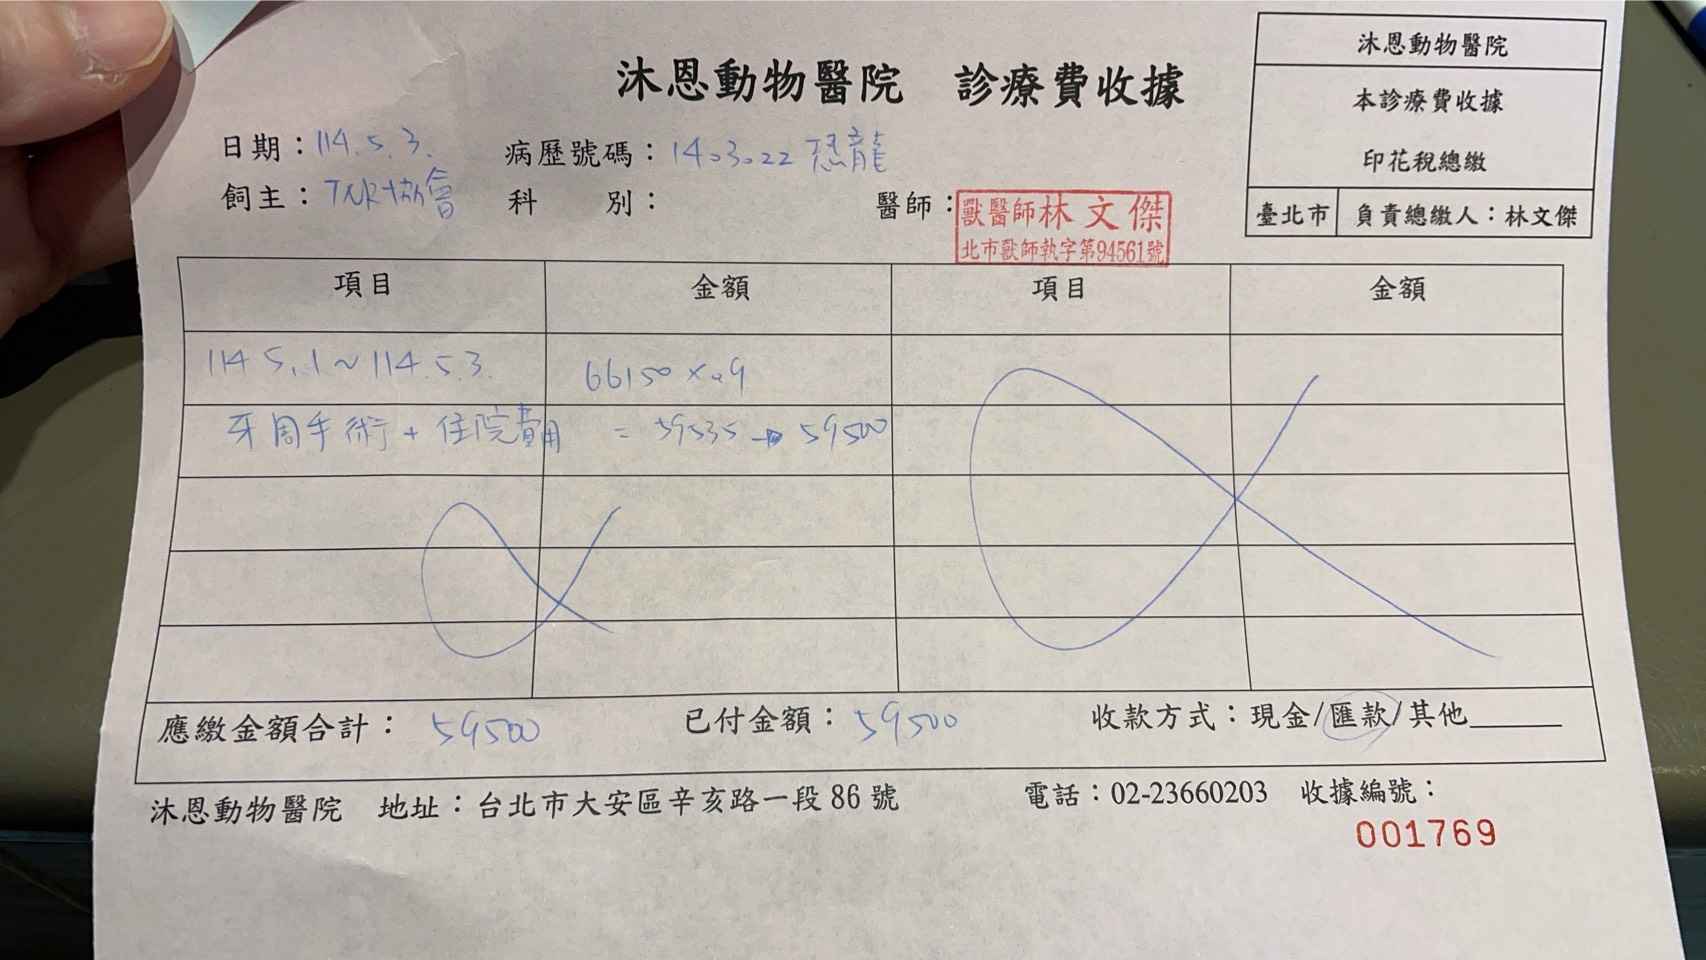 沐恩動物醫院 診療費收據
沐恩動物醫院
本診療費收據
印花稅總繳
臺北市 負責總繳人：林文傑
日期：114.5.3. 病歷號碼：14.3.22 恐龍
飼主：TNR協會 科 別： 醫師：
獸醫師林文傑
北市獸師執字第94561號
項目 金額 項目 金額
114.5.1～114.5.3. 66150×.9
牙周手術+住院費用 =59535→59500
應繳金額合計：59500 已付金額：59500 收款方式：現金/匯款/其他
沐恩動物醫院 地址：台北市大安區辛亥路一段86號 電話：02-23660203 收據編號：
001769